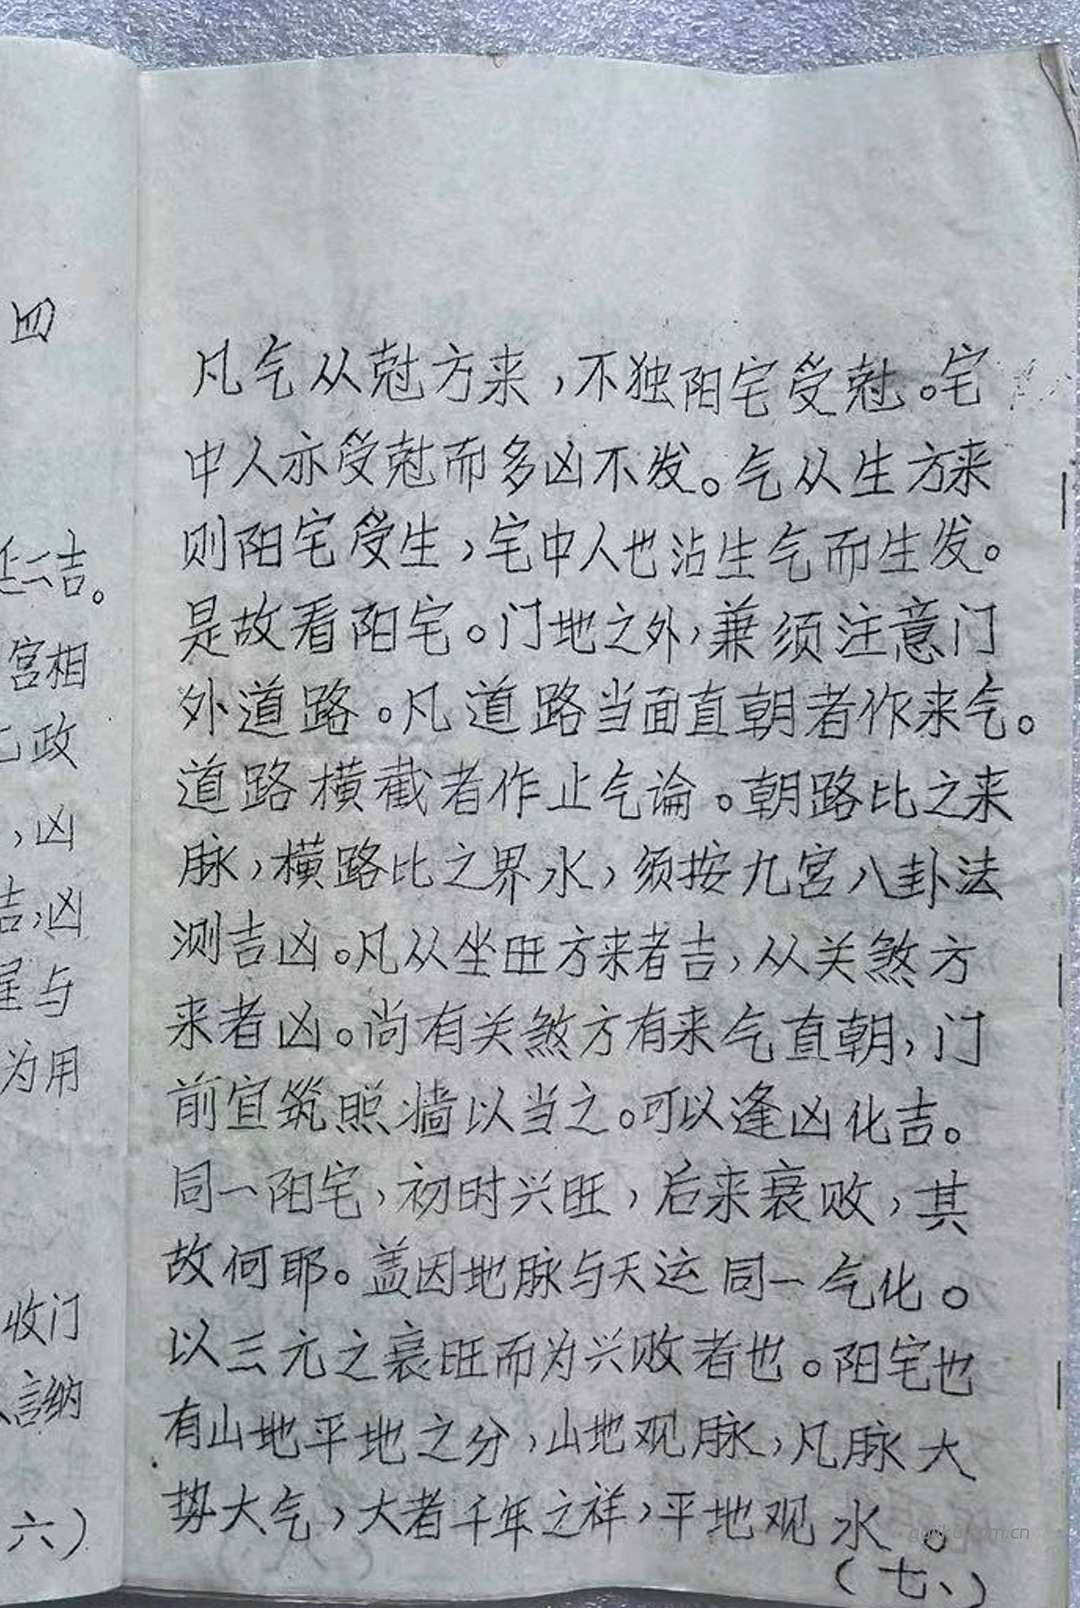 四
凡气从尅方来，不独阳宅受尅。宅
中人亦受尅而多凶不发。气从生方来
则阳宅受生，宅中人也沾生气而生发。
是故看阳宅。门地之外，兼须注意门
外道路。凡道路当面直朝者作来气。
道路横截者作止气论。朝路比之来
脉，横路比之界水，须按九宫八卦法
测吉凶。凡从坐旺方来者吉，从关煞方
来者凶。尚有关煞方有来气直朝，门
前宜筑照墙以当之。可以逢凶化吉。
同一阳宅，初时兴旺，后来衰败，其
故何耶。盖因地脉与天运同一气化。
以三元之衰旺而为兴败者也。阳宅也
有山地平地之分，山地观脉，凡脉大
势大气，大者千年之祥，平地观水。
（七、）
吉。
宫相
政
，凶
吉，凶
与
为用
收门
言纳
六）